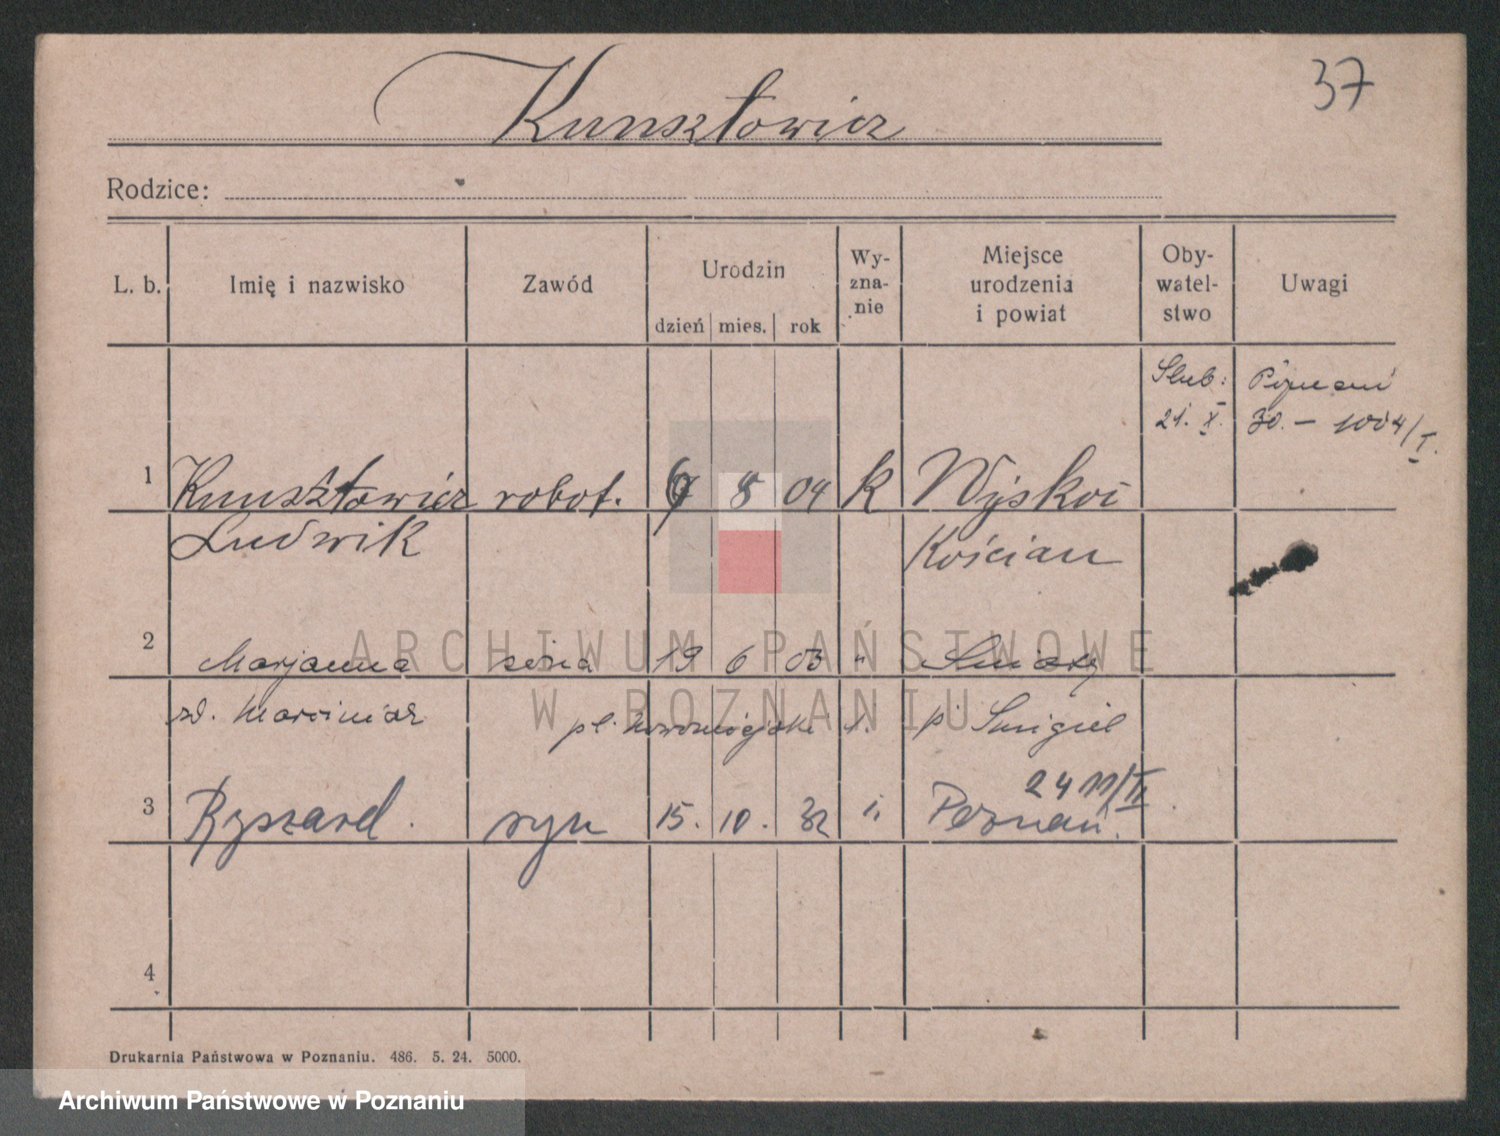 37
Kunsztowicz
Rodzice:
L. b. Imię i nazwisko Zawód Urodzin dzień mies. rok Wy-zna-nie Miejsce urodzenia i powiat Oby-watel-stwo Uwagi
Ślub: Poznań
21. X. 30. – 1004/I.
1 Kunsztowicz robot. 8 04 k Wyskoć
Ludwik Kościan
2 Marjanna żona 19 6 03 "
zd. Marciniak pl. Nowomiejski p. Śmigiel
2411/II
3 Ryszard syn 15. 10. 32 " Poznań.
4
Drukarnia Państwowa w Poznaniu. 486. 5. 24. 5000.
ARCHIWUM PAŃSTWOWE
W POZNANIU
Archiwum Państwowe w Poznaniu